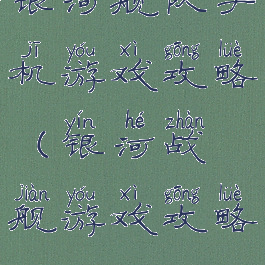 银河舰队手
jī yóu xì gōng lüè
机游戏攻略
yín hé zhàn
(银河战
jiàn yóu xì gōng lüè
舰游戏攻略